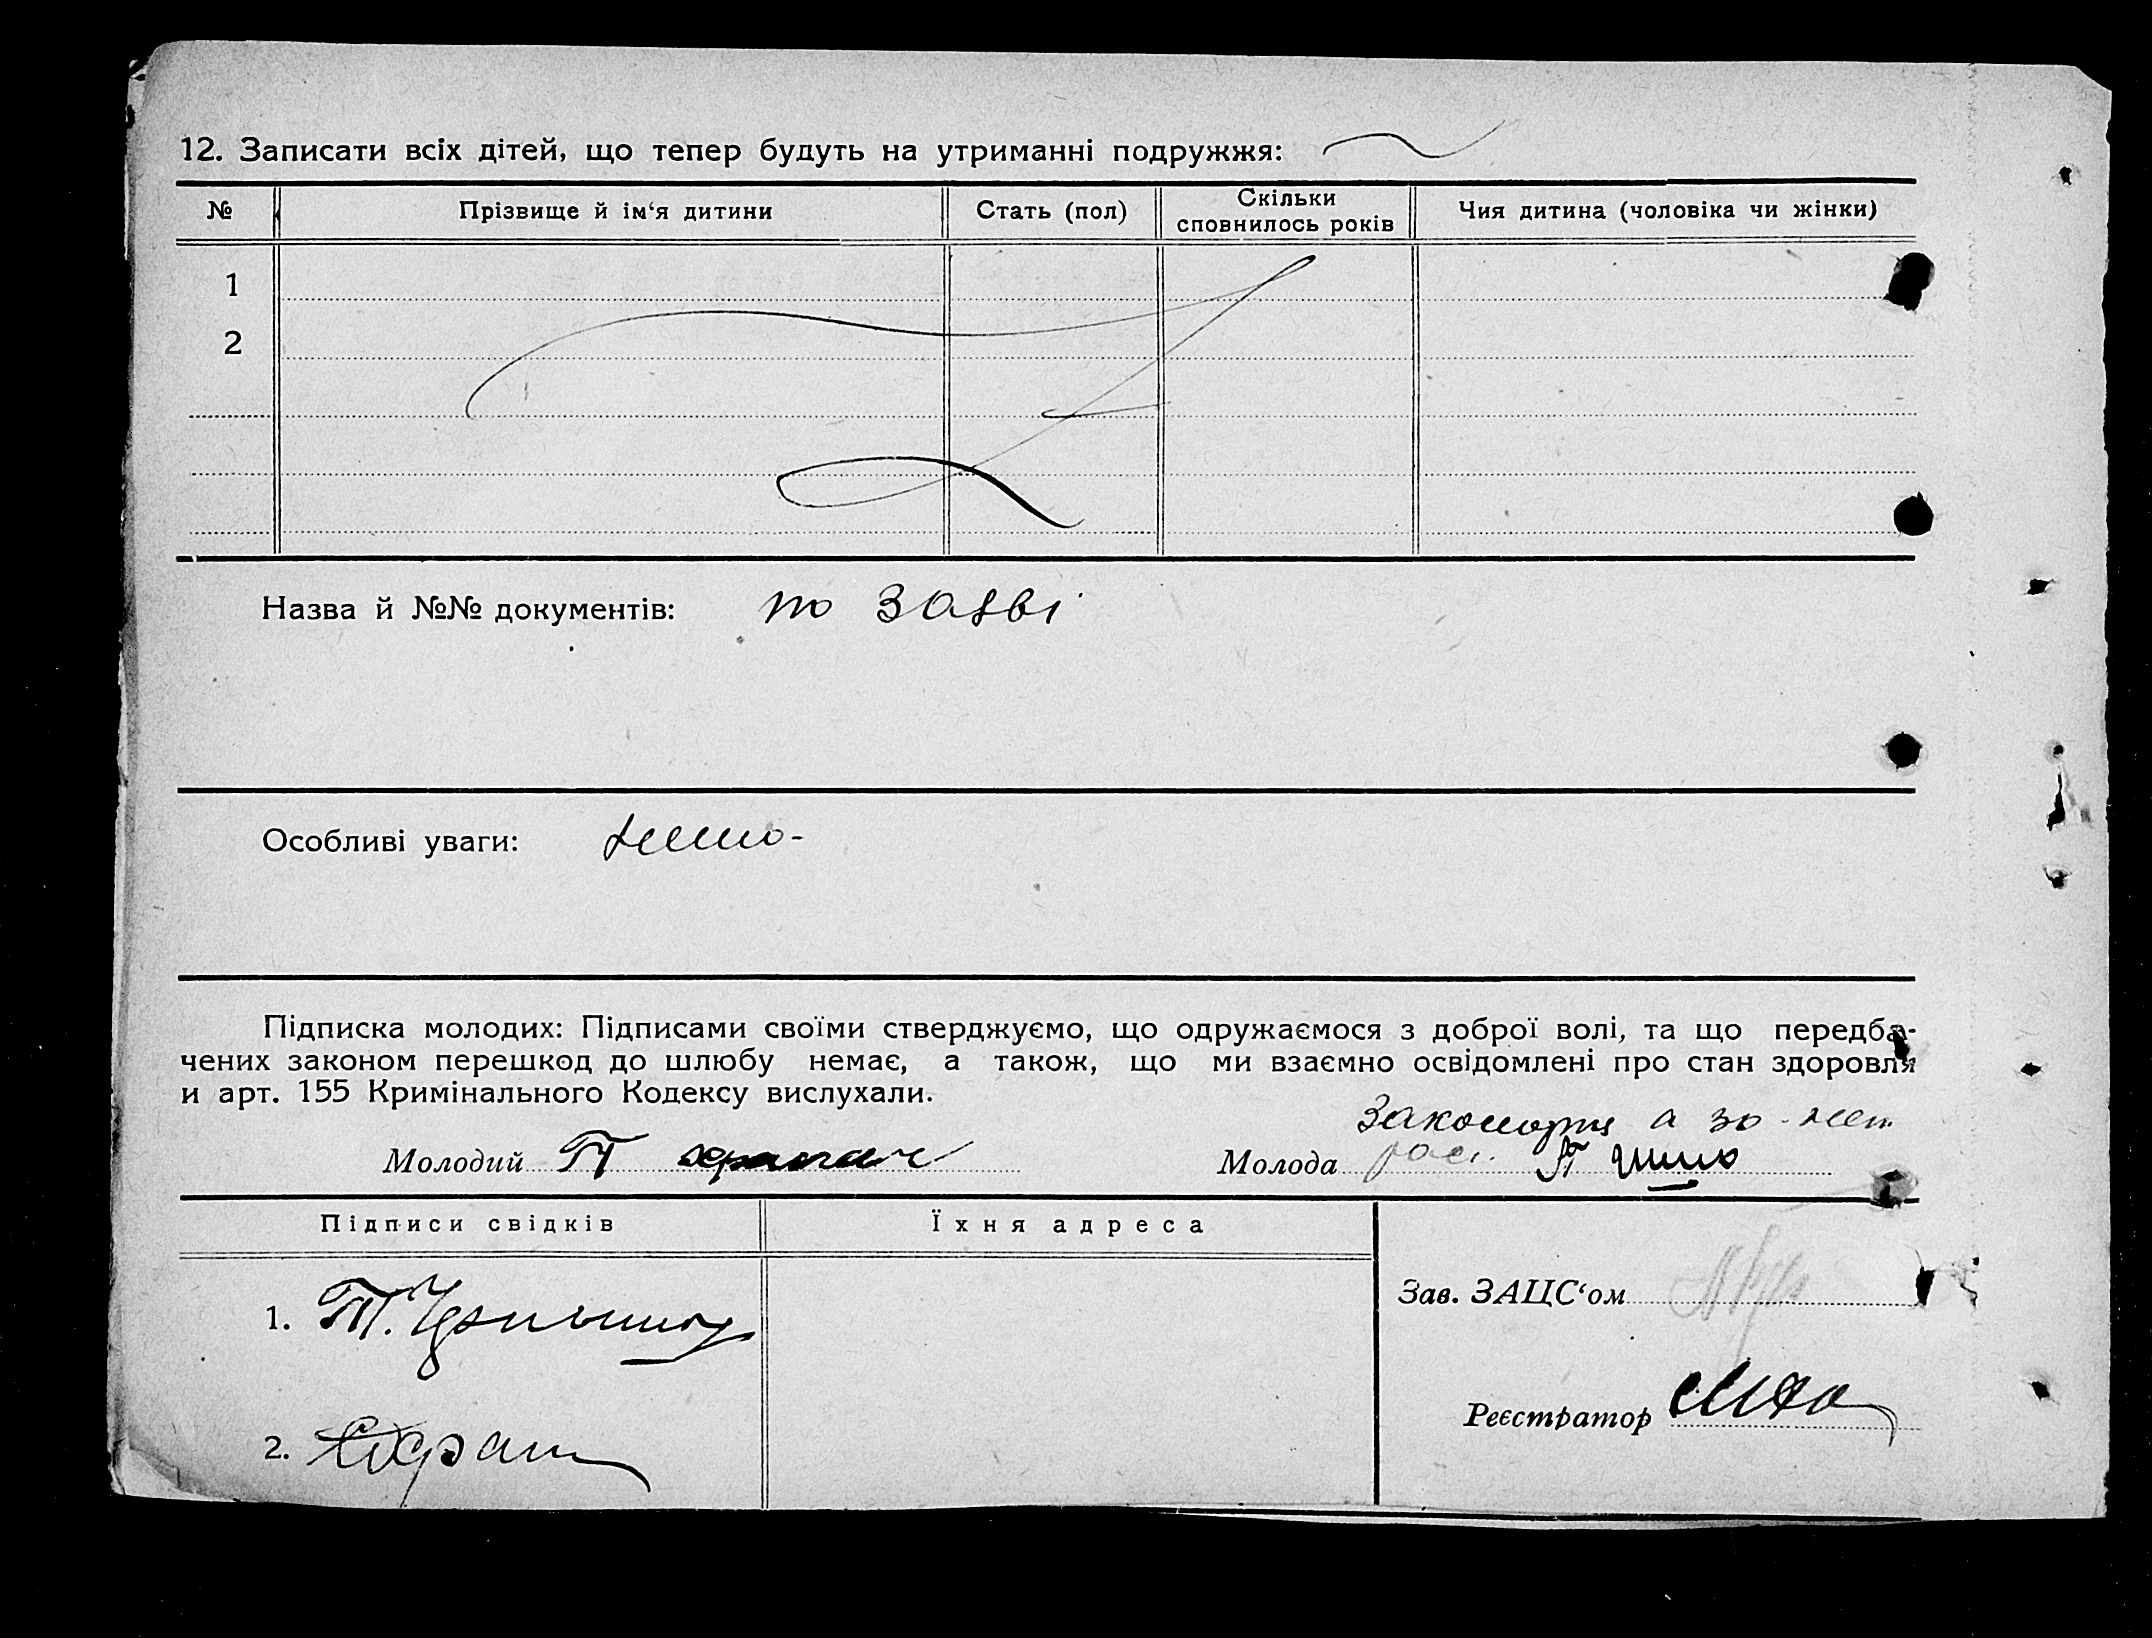 12. Записати всіх дітей, що тепер будуть на утриманні подружжя:
№ Прізвище й ім‘я дитини Стать (пол) Скільки сповнилось років Чия дитина (чоловіка чи жінки)
1
2
Назва й №№ документів: по заяві
Особливі уваги:
Підписка молодих: Підписами своїми стверджуємо, що одружаємося з доброї волі, та що передба-
чених законом перешкод до шлюбу немає, а також, що ми взаємно освідомлені про стан здоровля
и арт. 155 Кримінального Кодексу вислухали.
Молодий Молода
Підписи свідків Їхня адреса
Зав. ЗАЦС‘ом
1.
Реєстратор
2.